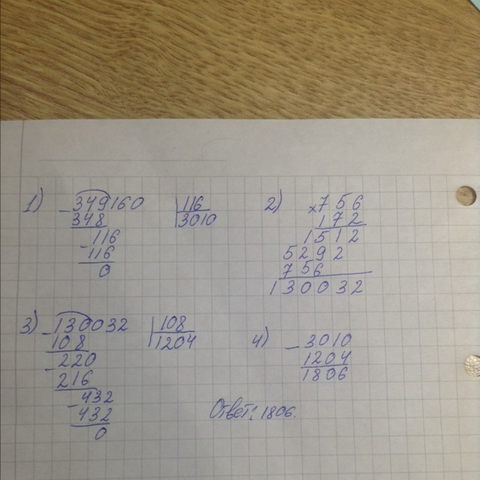 1) - 349160 | 116
348 3010
- 116
116
0
2) × 756
172
1512
5292
756
130032
3) - 130032 | 108
108 1204
- 220
216
- 432
432
0
4) - 3010
1204
1806
Ответ: 1806.